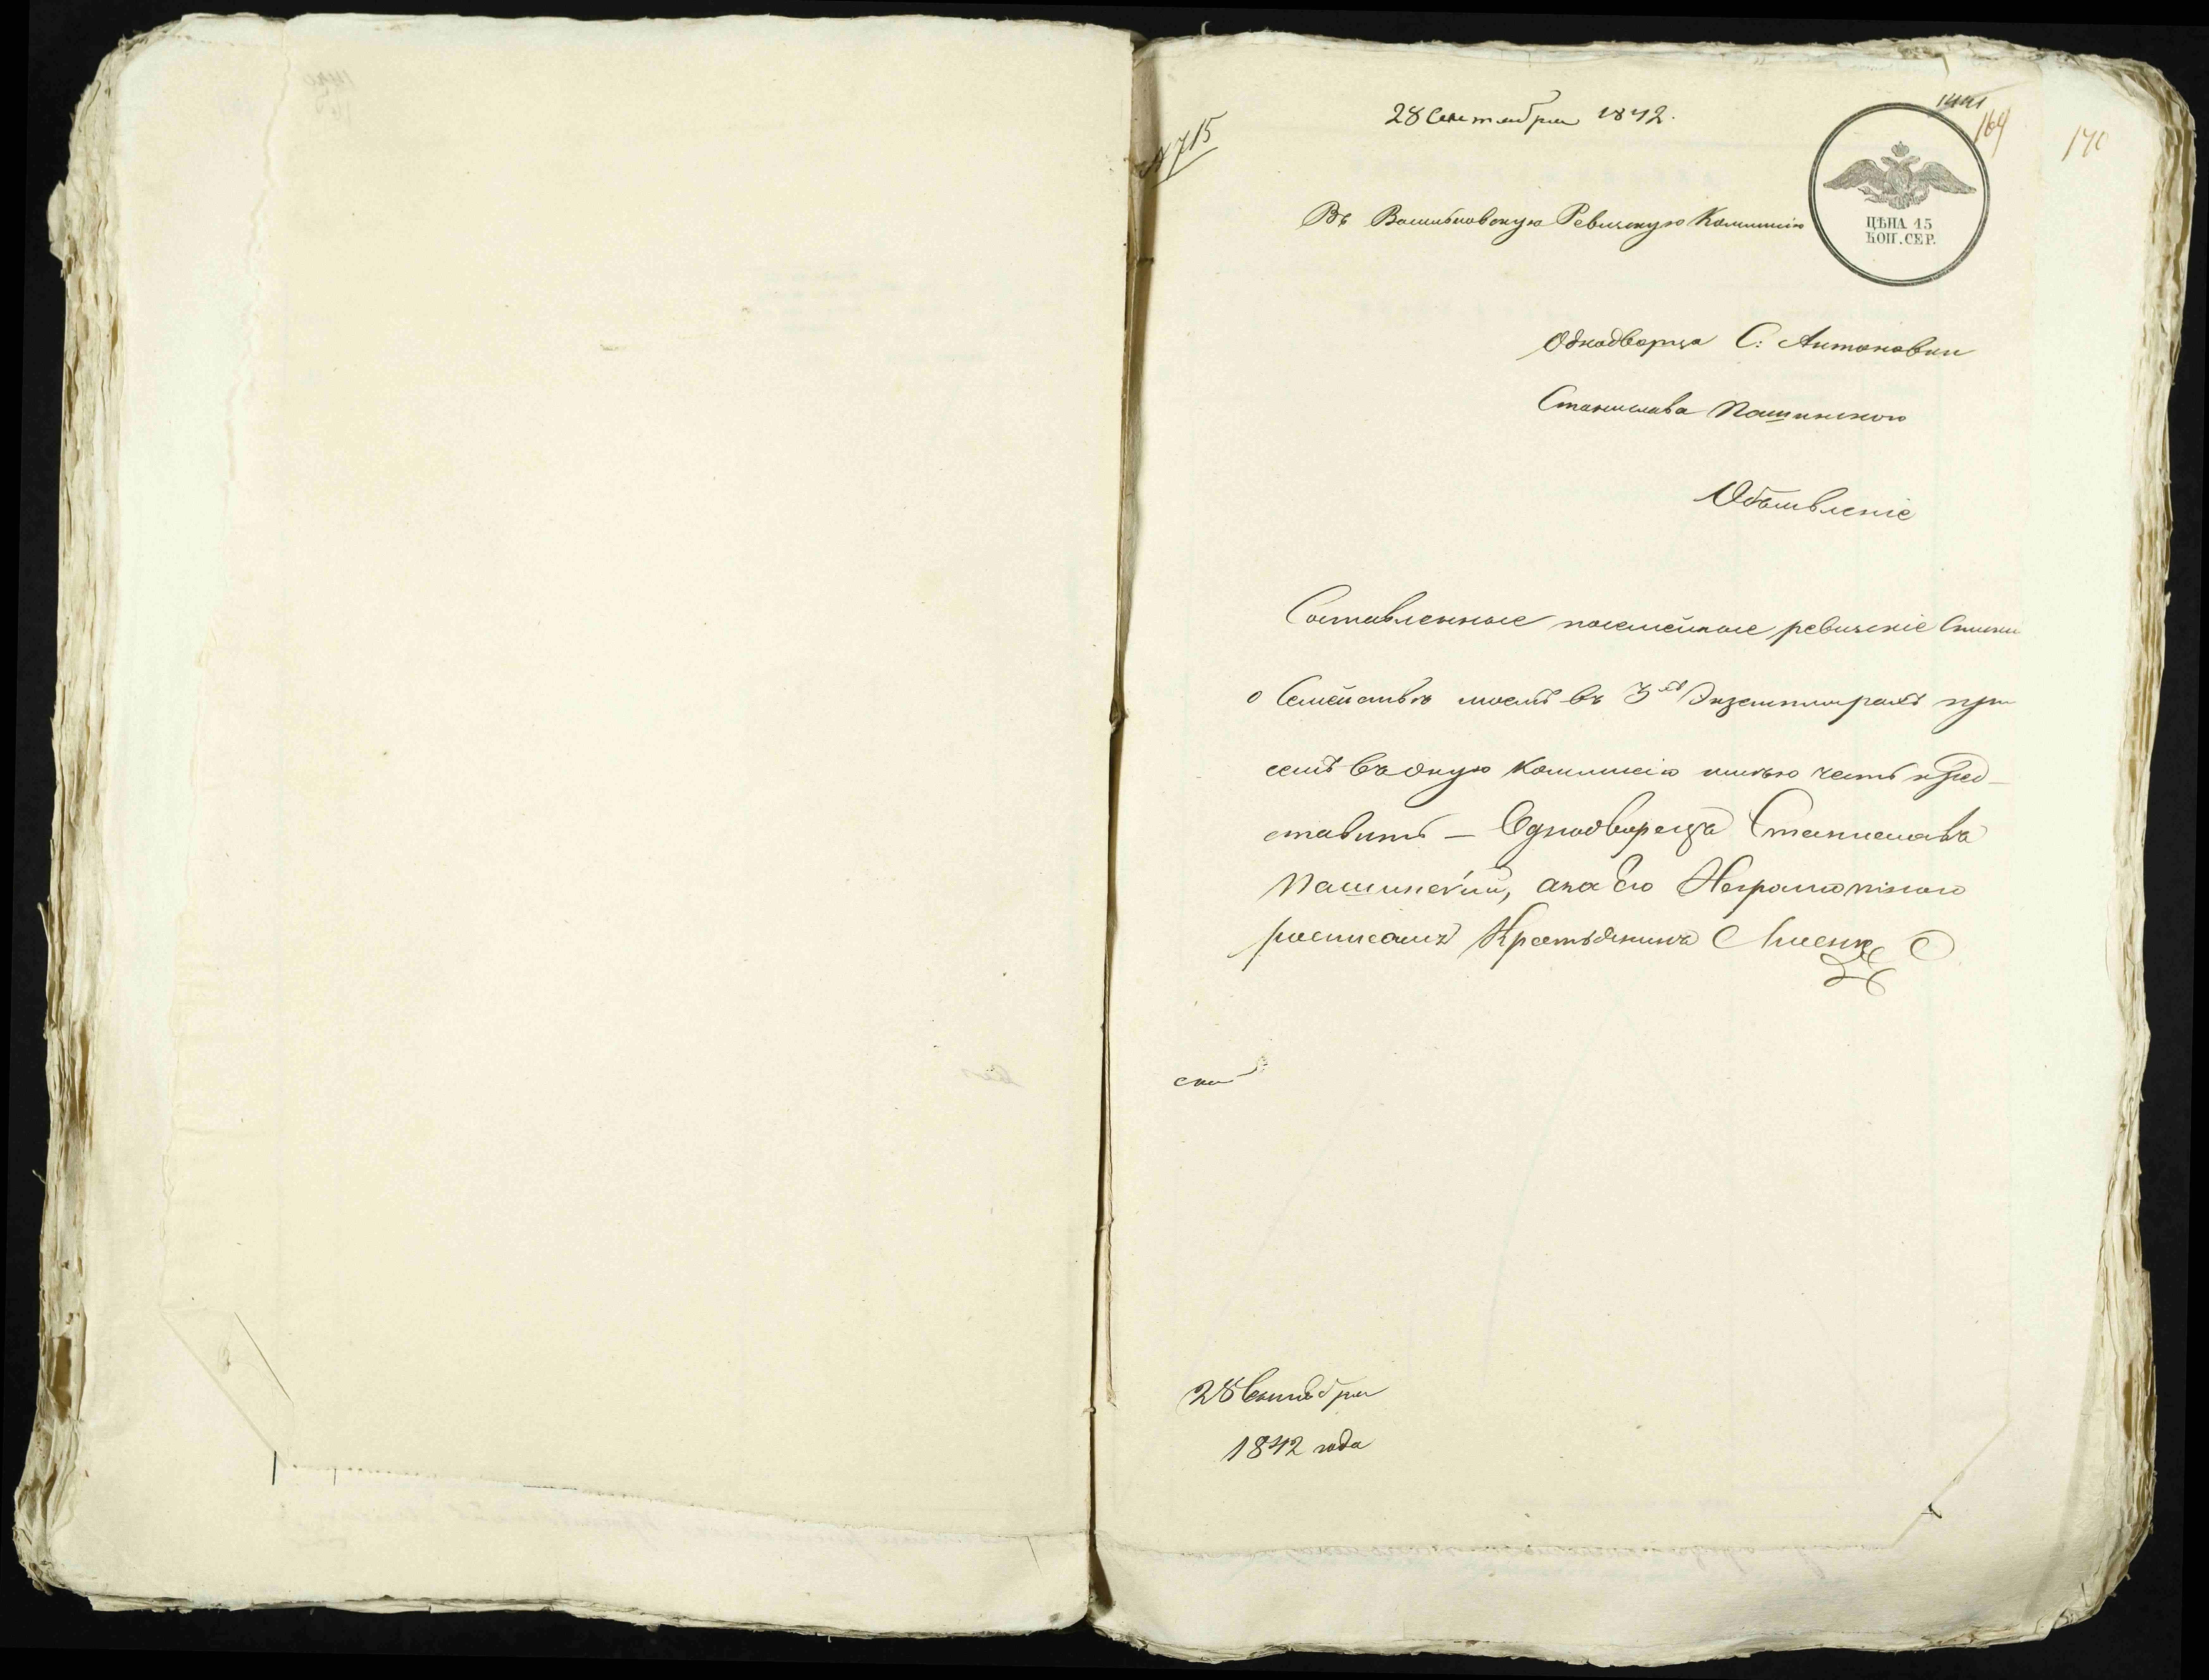 28 Сентября 1842.
№ 715
1441
169
170
Въ Васильковскую Ревизскую Коммисію
ЦѢНА 15
КОП. СЕР.
Однодворца С: Антоновки
Станислава Пашинского
Объявленіе
Составленные посемейные ревизскіе Списки
о Семействѣ моемъ въ 3хъ Экземплярахъ при
семъ въ оную Коммисію имѣю честь пред-
ставить — Однодворецъ Станиславъ
Пашинскій, а за его Неграмотного
росписался Крестьянинъ
28 Сентября
1842 года